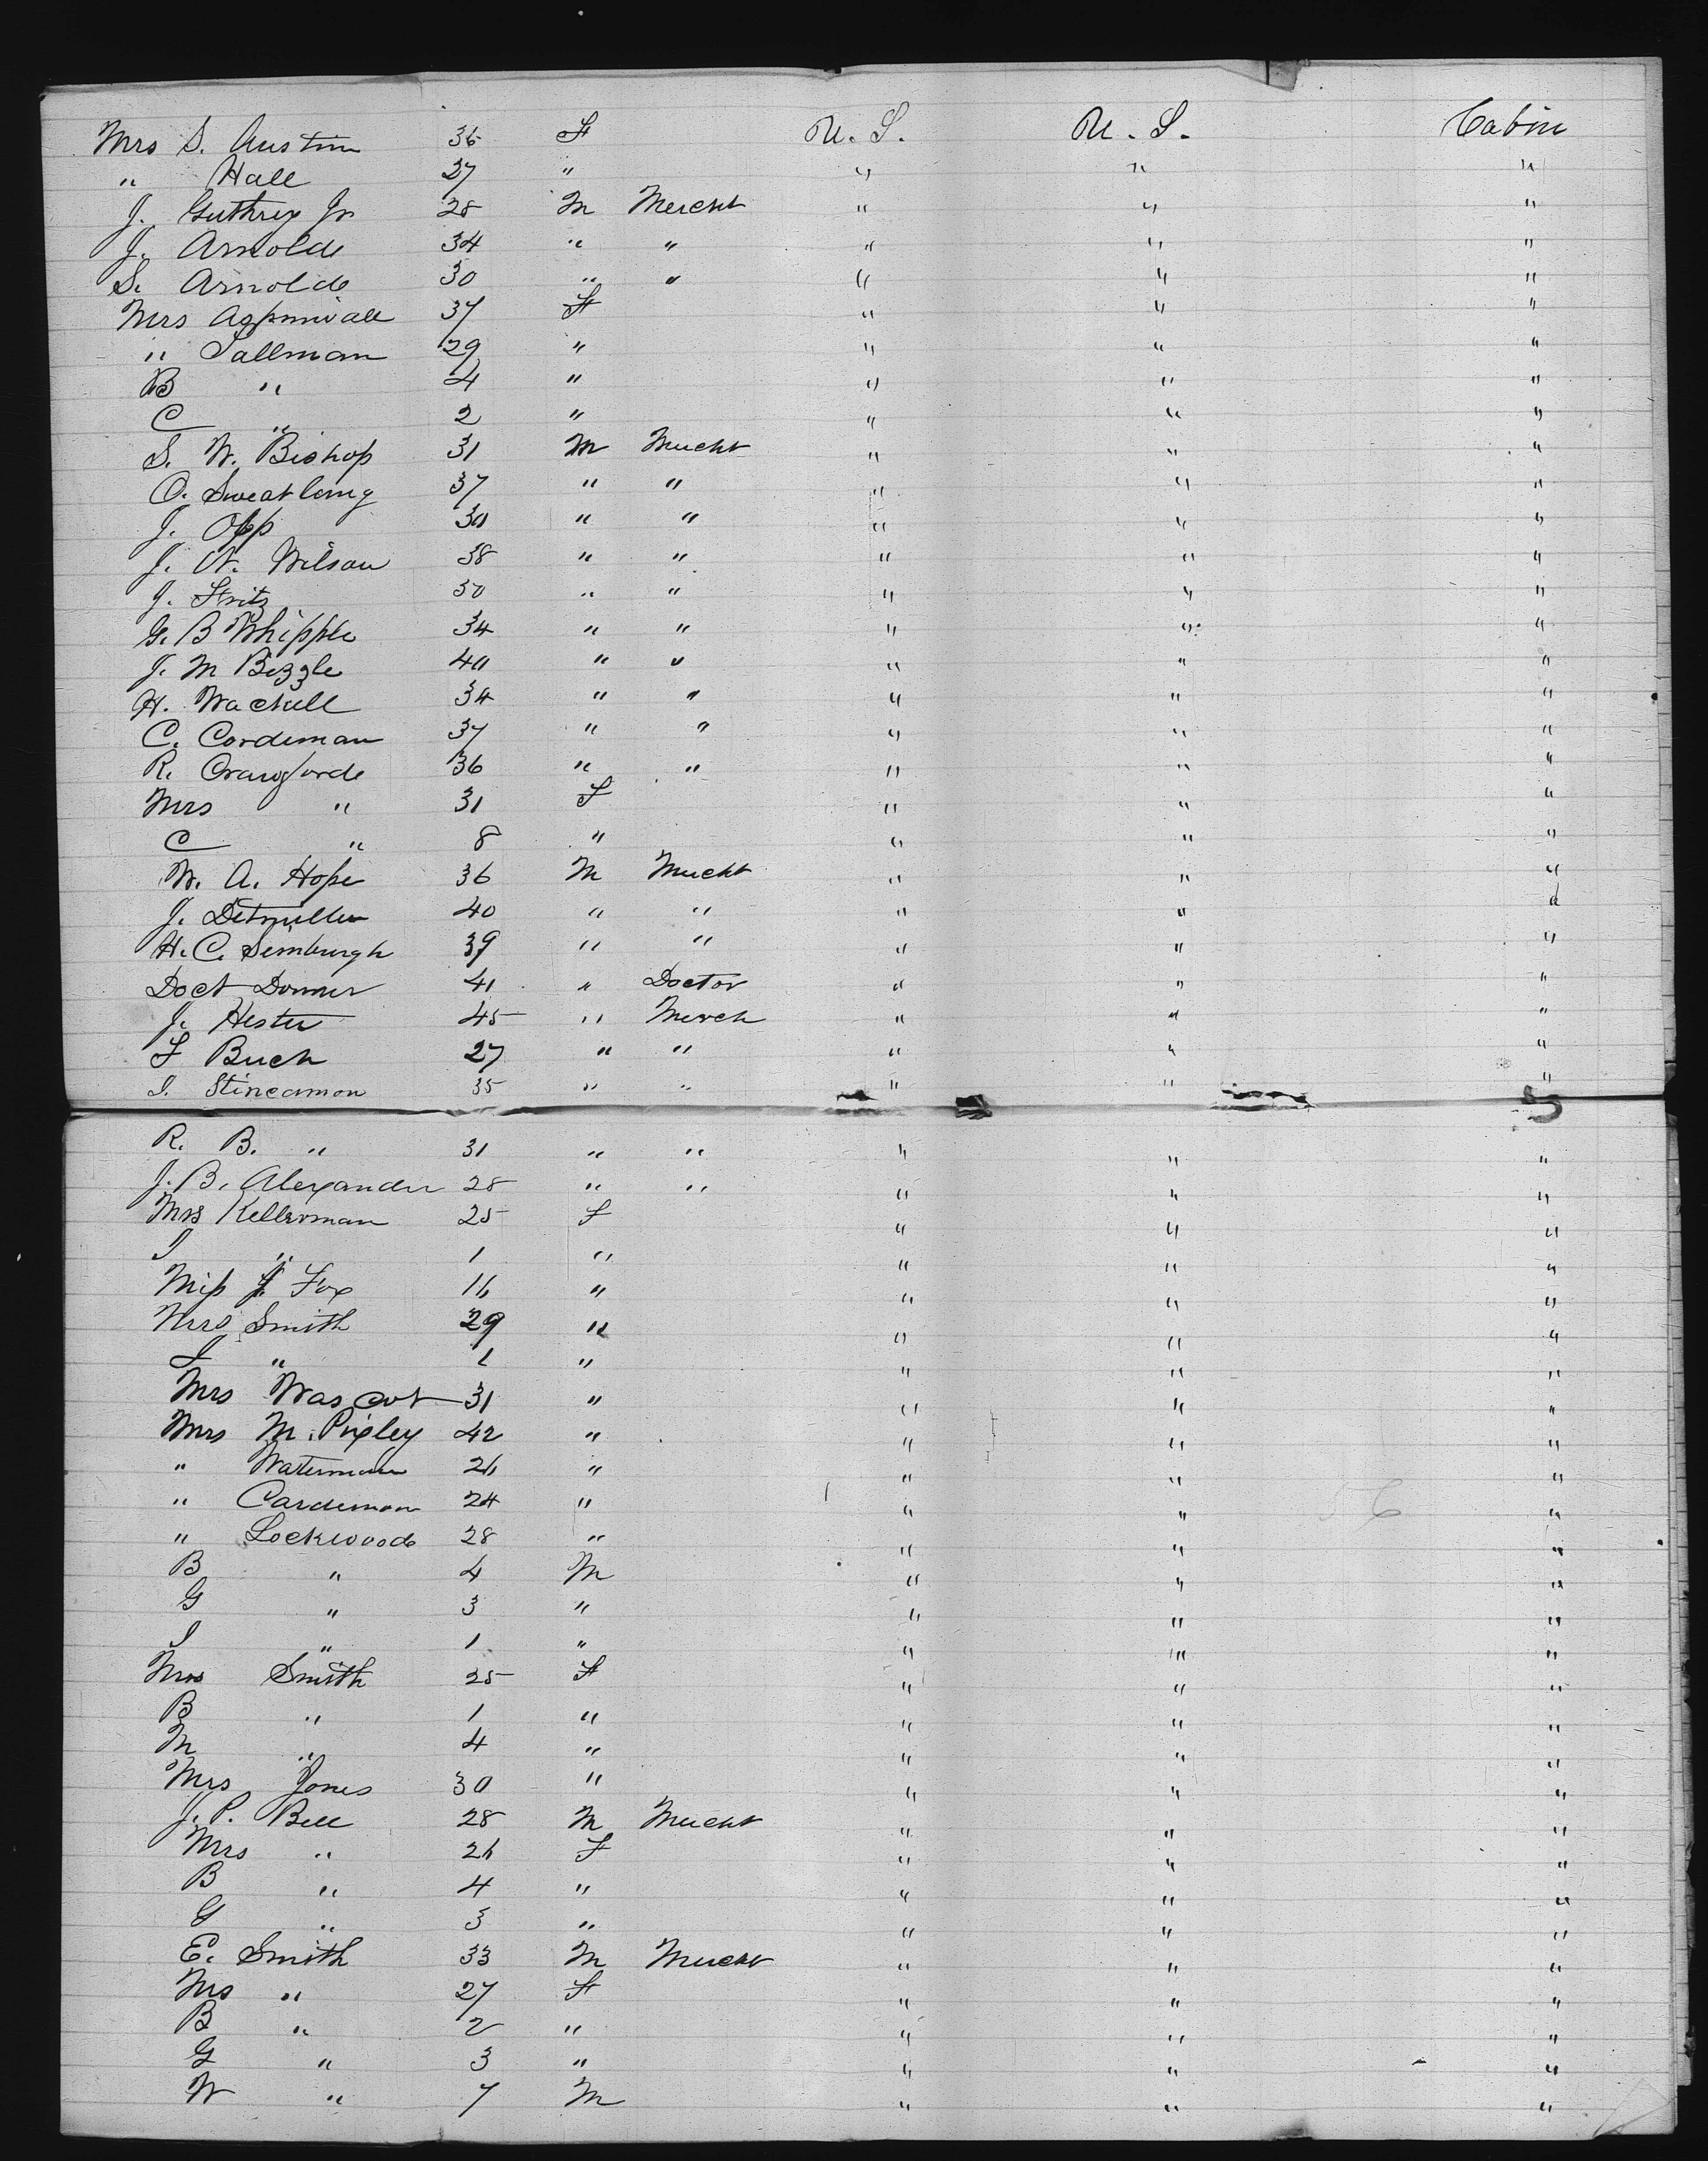 Mrs S. Austin 36 F U. S. U. S. Cabin
" Hall 27 " " " "
J. Guthrey Jr 28 M Mercht " " "
J. Arnolde 34 " " " " "
S. Arnolde 30 " " " " "
Mrs Aspinwall 37 F " " "
" Tallman 29 " " " "
B " 4 " " " "
C " 2 " " " "
S. W. Bishop 31 M Mercht " " "
O. Sweatlong 37 " " " " "
J. Opp 30 " " " " "
J. N. Wilson 38 " " " " "
J. Fritz 30 " " " " "
G. B Whipple 34 " " " " "
J. M Bizzle 40 " " " " "
H. Wachell 34 " " " " "
C. Cordeman 37 " " " " "
R. Crawforde 36 " " " " "
Mrs " 31 F " " "
C " 8 " " " "
W. A. Hope 36 M Mucht " " "
J. Detmuller 40 " " " " "
H. C. Semburgh 39 " " " " "
Doct Donner 41 " Doctor " " "
J. Hester 45 " Merch " " "
F Buch 27 " " " " "
I. Stineamon 35 " " " " "
R. B. " 31 " " " " "
J. B. Alexander 28 " " " " "
Mrs Kellerman 25 F " " "
I " 1 " " " "
Miss J. Fox 16 " " " "
Mrs Smith 29 " " " "
I " 1 " " " "
Mrs Wascot 31 " " " "
Mrs M. Pixley 42 " " " "
" Waterman 26 " " " "
" Cardeman 24 " " " "
" Lockwoode 28 " " " "
B " 4 M " " "
G " 3 " " " "
I " 1 " " " "
Mrs Smith 25 F " " "
B " 1 " " " "
M " 4 " " " "
Mrs Jones 30 " " " "
J. P. Bell 28 M Mucht " " "
Mrs " 26 F " " "
B " 4 " " " "
G " 3 " " " "
E. Smith 33 M Mucht " " "
Mrs " 27 F " " "
B " 2 " " " "
G " 3 " " " "
W " 7 M " " "